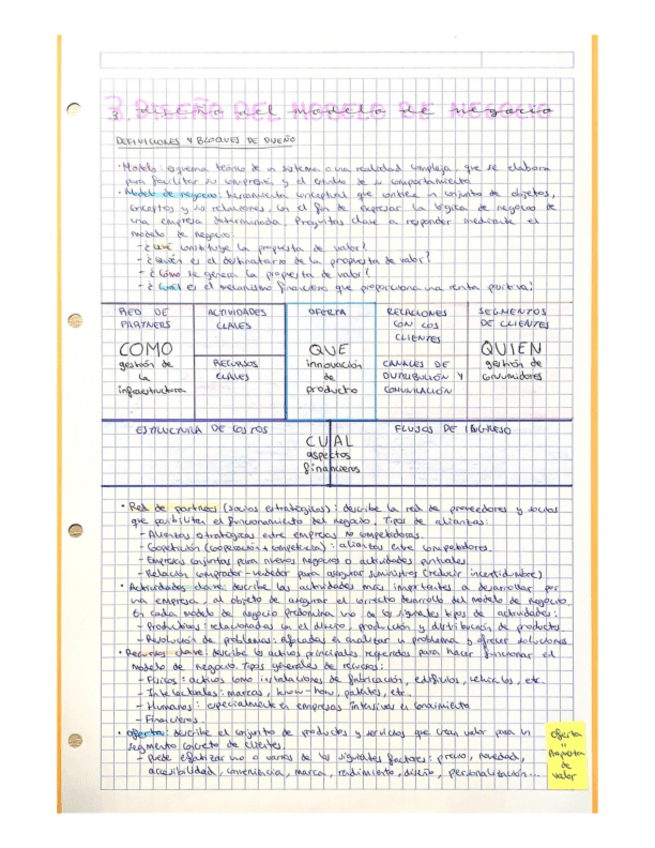 3. DISEÑO DEL MODELO DE NEGOCIO
3. diseño del modelo de negocio
DEFINICIONES Y BLOQUES DE DISEÑO
· Modelo: esquema teórico de un sistema o una realidad compleja, que se elabora
para facilitar su comprensión y el estudio de su comportamiento
· Modelo de negocio: herramienta conceptual que contiene un conjunto de objetos,
conceptos y sus relaciones, con el fin de expresar la lógica de negocio de
una empresa determinada. Preguntas clave a responder mediante el
modelo de negocio:
- ¿Qué constituye la propuesta de valor?
- ¿Quién es el destinatario de la propuesta de valor?
- ¿Cómo se genera la propuesta de valor?
- ¿Cuál es el mecanismo financiero que proporciona una renta positiva?
RED DE
PARTNERS
COMO
gestión de
la
infraestructura
ACTIVIDADES
CLAVES
RECURSOS
CLAVES
OFERTA
QUE
innovación
de
producto
RELACIONES
CON LOS
CLIENTES
CANALES DE
DISTRIBUCIÓN Y
COMUNICACIÓN
SEGMENTOS
DE CLIENTES
QUIEN
gestión de
consumidores
ESTRUCTURA DE COSTOS
CUAL
aspectos
financieros
FLUJOS DE INGRESO
· Red de partners (socios estratégicos): describe la red de proveedores y socios
que posibilitan el funcionamiento del negocio. Tipos de alianzas:
- Alianzas estratégicas entre empresas no competidoras.
- Coopetición (cooperación + competencia): alianzas entre competidores.
- Empresas conjuntas para nuevos negocios o actividades puntuales.
- Relación comprador-vendedor para asegurar suministros (reducir incertidumbre)
· Actividades clave: describe las actividades más importantes a desarrollar por
una empresa, al objeto de asegurar el correcto desarrollo del modelo de negocio
En cada modelo de negocio predomina uno de los siguientes tipos de actividades:
- Productivas: relacionadas con el diseño, producción y distribución de productos
- Resolución de problemas: enfocadas en analizar un problema y ofrecer soluciones
· Recursos clave: describe los activos principales requeridos para hacer funcionar el
modelo de negocio. Tipos generales de recursos:
- Físicos: activos como instalaciones de fabricación, edificios, vehículos, etc.
- Intelectuales: marcas, know-how, patentes, etc.
- Humanos: especialmente en empresas intensivas en conocimiento
- Financieros.
· Oferta: describe el conjunto de productos y servicios que crean valor para un
segmento concreto de clientes.
- Puede enfatizar uno o varios de los siguientes factores: precio, novedad,
accesibilidad, conveniencia, marca, rendimiento, diseño, personalización...
Oferta
=
Propuesta
de
valor